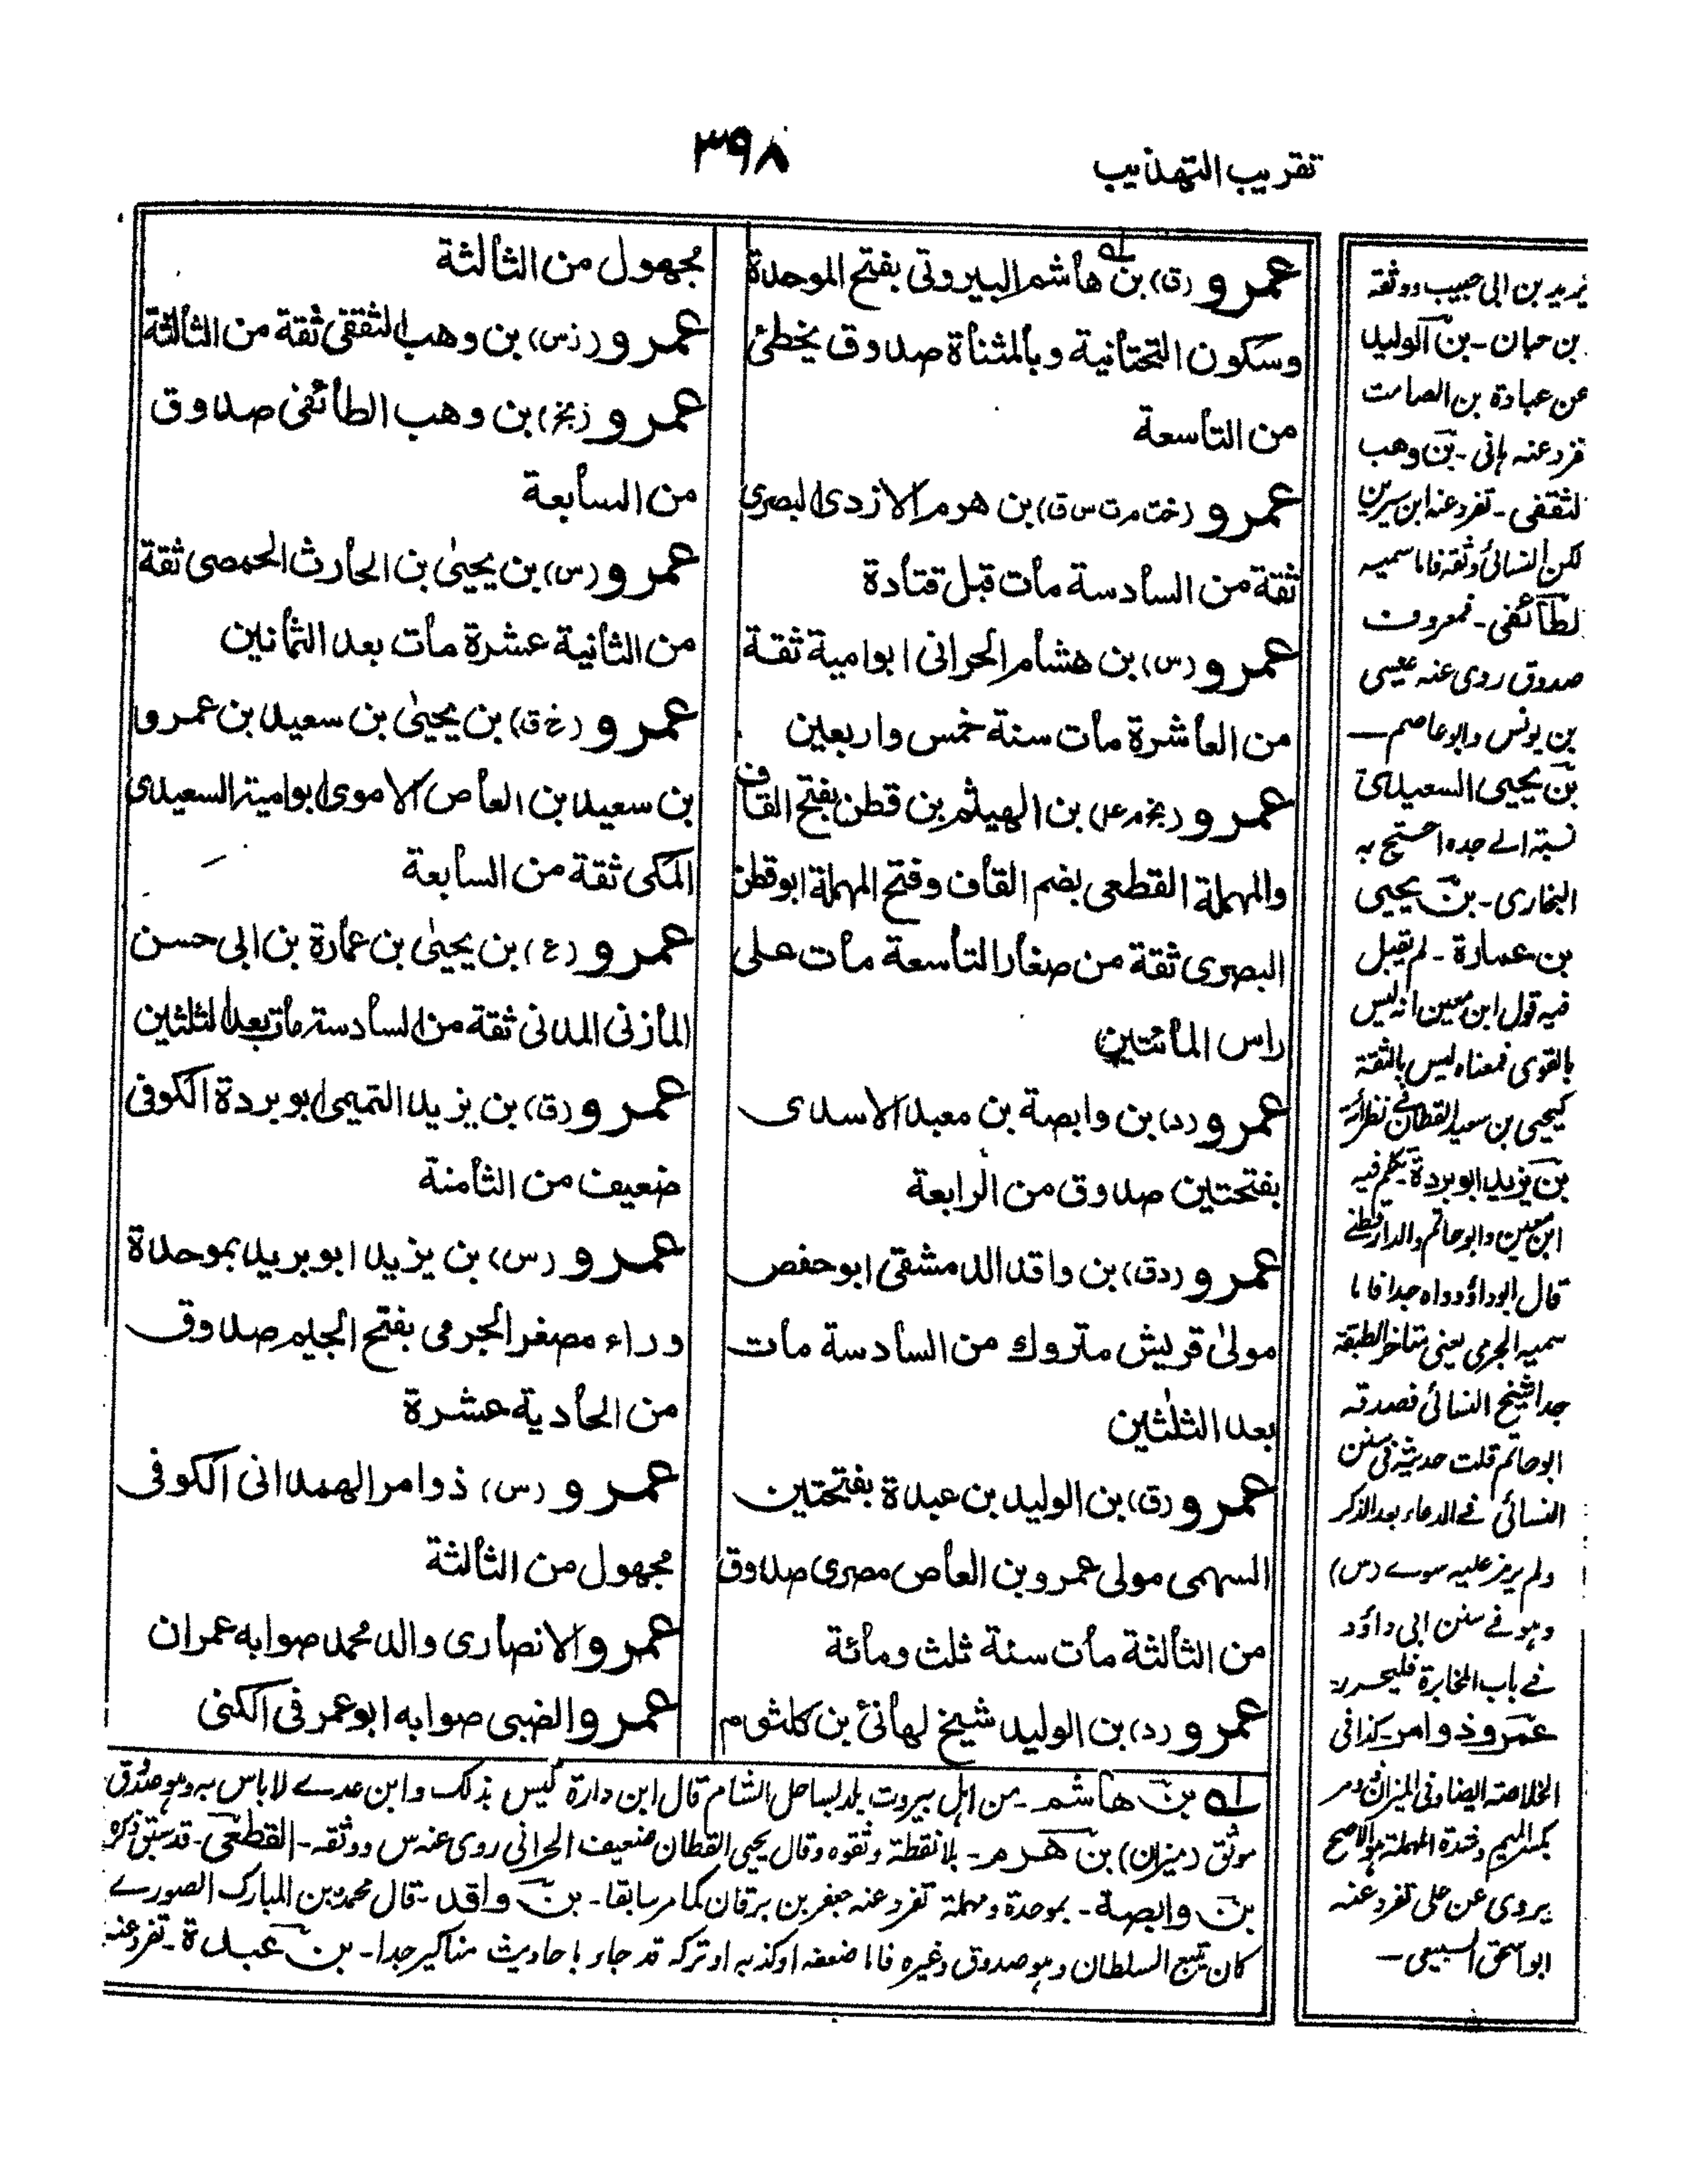 تقريب التهذيب
٣٩٨
عمرو (ق) بن هاشم البيروتى بفتح الموحدة
وسكون التحتانية وبالمثناة صدوق يخطئ
من التاسعة
عمرو (خت م ت س ق) بن هرم الازدى البصرى
ثقة من السادسة مات قبل قتادة
عمرو (س) بن هشام الحرانى ابو امية ثقة
من العاشرة مات سنة خمس واربعين
عمرو (بخ م عل) بن الهيثم بن قطن بفتح القاف
والمهملة القطعى بضم القاف وفتح المهملة ابو قطن
البصرى ثقة من صغار التاسعة مات على
راس المائتين
عمرو (د) بن وابصة بن معبد الاسدى
بفتحتين صدوق من الرابعة
عمرو (دق) بن واقد الدمشقى ابو حفص
مولىٰ قريش متروك من السادسة مات
بعد الثلثين
عمرو (ق) بن الوليد بن عبدة بفتحتين
السهمى مولى عمرو بن العاص مصرى صدوق
من الثالثة مات سنة ثلث ومائة
عمرو (د) بن الوليد شيخ لهانئ بن كلثوم
مجهول من الثالثة
عمرو (زس) بن وهب الثقفى ثقة من الثالثة
عمرو (بخ) بن وهب الطائفى صدوق
من السابعة
عمرو (س) بن يحيىٰ بن الحارث الحمصى ثقة
من الثانية عشرة مات بعد الثمانين
عمرو (خ ق) بن يحيىٰ بن سعيد بن عمرو
بن سعيد بن العاص الاموى ابو امية السعيدى
المكى ثقة من السابعة
عمرو (ع) بن يحيىٰ بن عمارة بن ابى حسن
المازنى المدنى ثقة من السادسة مات بعد الثلثين
عمرو (ق) بن يزيد التميمى ابو بردة الكوفى
ضعيف من الثامنة
عمرو (س) بن يزيد ابو بريد بموحدة
وراء مصغر الجرمى بفتح الجيم صدوق
من الحادية عشرة
عمرو (س) ذو امر الهمدانى الكوفى
مجهول من الثالثة
عمرو الانصارى والد محمد صوابه عمران
عمرو الضبى صوابه ابو عمر فى الكنى
يزيد بن ابى حبيب ووثقه
بن حبان - بن الوليد
عن عبادة بن الصامت
تفرد عنه هانى - بن وهب
لثقفى - تفرد عنه ابن سيرين
لكن النسائى وثقه فاما سميه
لطائفى - فمعروف
صدوق روى عنه عيسى
بن يونس وابو عاصم —
بن يحيى السعيدى
نسبة الے جده احتج به
البخارى - بن يحيى
بن عمارة - لم يقبل
فيه قول ابن معين انه ليس
بالقوى فمعناه ليس بالثقة
كيحيى بن سعيد القطان فے نظرائه
بن يزيد ابو بردة تكلم فيه
ابن معين وابو حاتم والدارقطنے
قال ابو داؤد واه جدا فاما
سميه الجرمى يعنى متاخر الطبقة
جدا شيخ النسائى فصدقه
ابو حاتم قلت حديثه فى سنن
النسائى فے الدعاء بعد الذكر
ولم يرمز عليه سوے (س)
وهو فے سنن ابى داؤد
فے باب المخابرة فليحرر
عمرو ذو امر - كذا فى
الخلاصة ايضا وفى الميزان ذو مر
بكسر الميم وشدة المهملة هو الاصح
يروى عن على تفرد عنه
ابو اسحق السبيعى —
له بن هاشم - من اهل بيروت بلد بساحل الشام قال ابن دارة ليس بذلك وابن عدے لا باس به وهو صدوق
موثق (ميزان) بن هرم - بلا نقطة وثقوه وقال يحيى القطان ضعيف الحرانى روى عنه س ووثقه - القطعى - قد سبق ذكره
بن وابصة - بموحدة ومهملة تفرد عنه جعفر بن برقان كما مر سابقا - بن واقد - قال محمد بن المبارك الصورے
كان يتبع السلطان وهو صدوق وغيره فاما ضعفه او كذبه او تركه قد جاء باحاديث مناكير جدا - بن عبدة - تفرد عنه